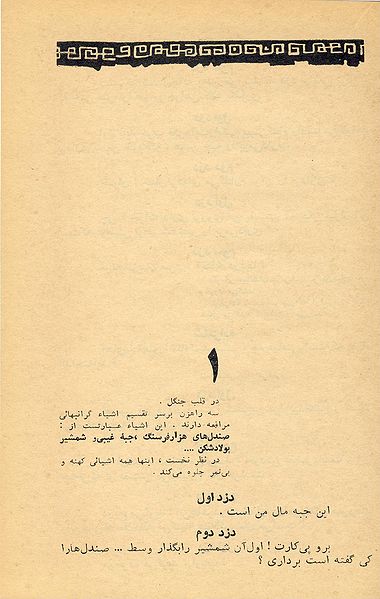 ۱
در قلب جنگل .
سه راهزن برسر تقسیم اشیاء گرانبهائی
مرافعه دارند . این اشیاء عبارتست از :
صندل‌های هزارفرسنگ ، جبهٔ غیبی‌و شمشیر
پولادشکن ....
در نظر نخست ، اینها همه اشیائی کهنه و
بی‌ثمر جلوه می‌کند .
دزد اول
این جبه مال من است .
دزد دوم
برو پی‌کارت ! اول‌آن شمشیر رابگذار وسط ... صندل‌هارا
کی گفته است برداری ؟